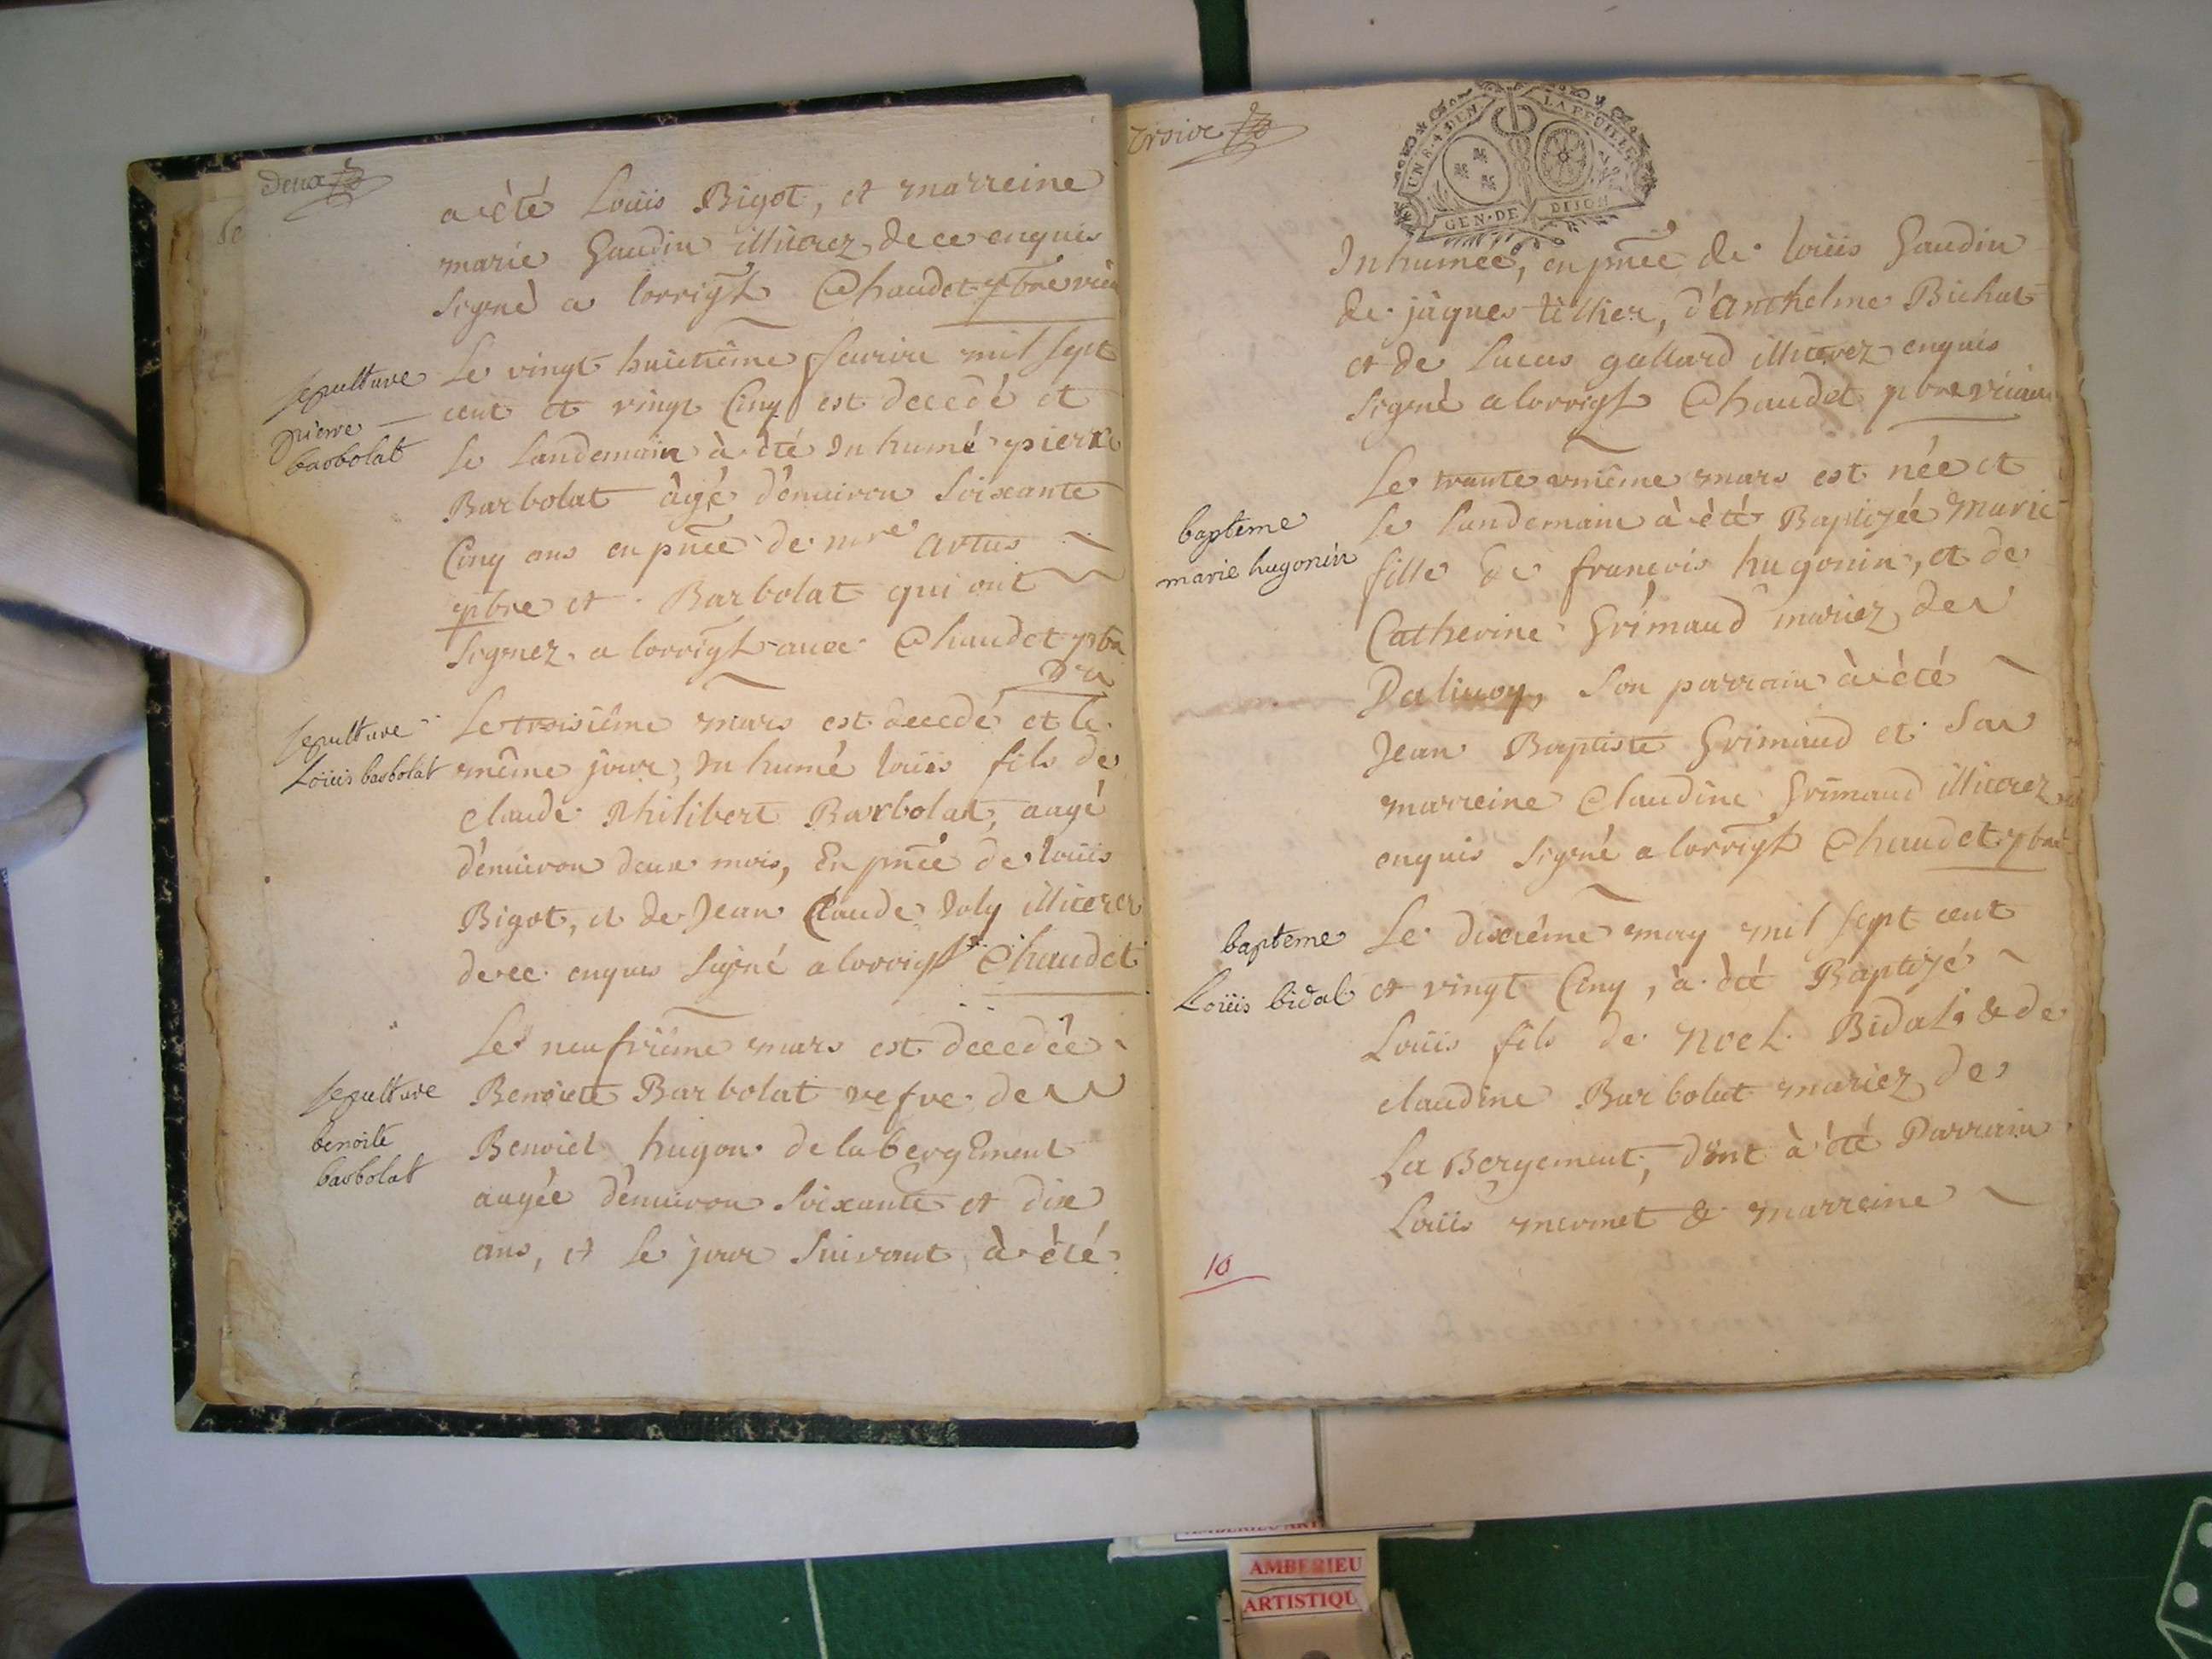 deux
a été Loüis Bigot, et marreine
marie Gaudin illiterez de ce enquis
signé a lorrigl Chaudet pbre vicà
sepulture
pierre
barbolat
Le vingt huictiême feurier mil sept
cent et vingt Cinq est decedé et
le landemain à été Inhumé pierre
Barbolat âgé d'enuiron Soixante
Cinq ans en pnce de mre Artus
pbre et Barbolat qui ont
signez a lorrigl auec Chaudet pbre
sepulture
Loüis barbolat
Le troisiême mars est decedé et le
même jour, Inhumé loüis fils de
claude Philibert Barbolat, augé
d'enuiron deux mois, En pnce de loüis
Bigot, et de Jean Claude Joly illiterez
de ce enquis Signé a lorrigl Chaudet
sepulture
benoite
barbolat
Le neufviême mars est decedée
Benoiete Barbolat vefve de
Benoict hugon de labergEment
augée d'enuiron Soixante et dix
ans, et le jour suivant à été
troise
UN S. 4 DEN LA FEUILLE
GEN. DE DIJON
Inhumée, en pnce de loüis Gaudin
de jâques tillier, d'Anthelme Bichat
et de Lucas gallard illiterez enquis
signé a lorrigl Chaudet pbre vicaire
bapteme
marie hugonin
Le trante vniême mars est née et
le landemain à été Baptizée Marie
fille de francois hugonin, et de
Catherine Grimaud mariez de
Dalivoy, Son parrain à été
Jean Baptiste Grimaud et Sa
marreine Claudine Grimaud illiterez
enquis signé a lorrigl Chaudet pbre
bapteme
Loüis bidal
Le dixiême may mil sept cent
et vingt Cinq, à été Baptizé
Loüis fils de Noel Bidal & de
claudine Barbolat mariez de
La Bergement, dont à été Parrain
Loüis mermet & marreine
10
AMBERIEU
ARTISTIQU